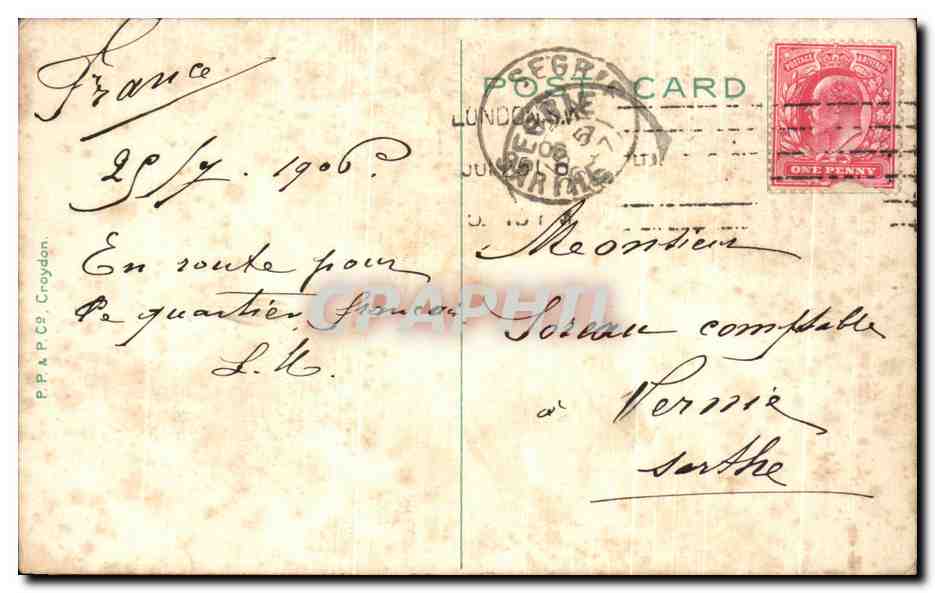 France
POST CARD
POSTAGE REVENUE
ONE PENNY
SEGRIE
LONDON S.W.
SEGRIE
06
SARTHE
25/7. 1906.
Monsieur
En route pour
le quartier français
L. M.
Soreau comptable
à Vernie
Sarthe
P. P. & P. Cº, Croydon.
CRAPHTI